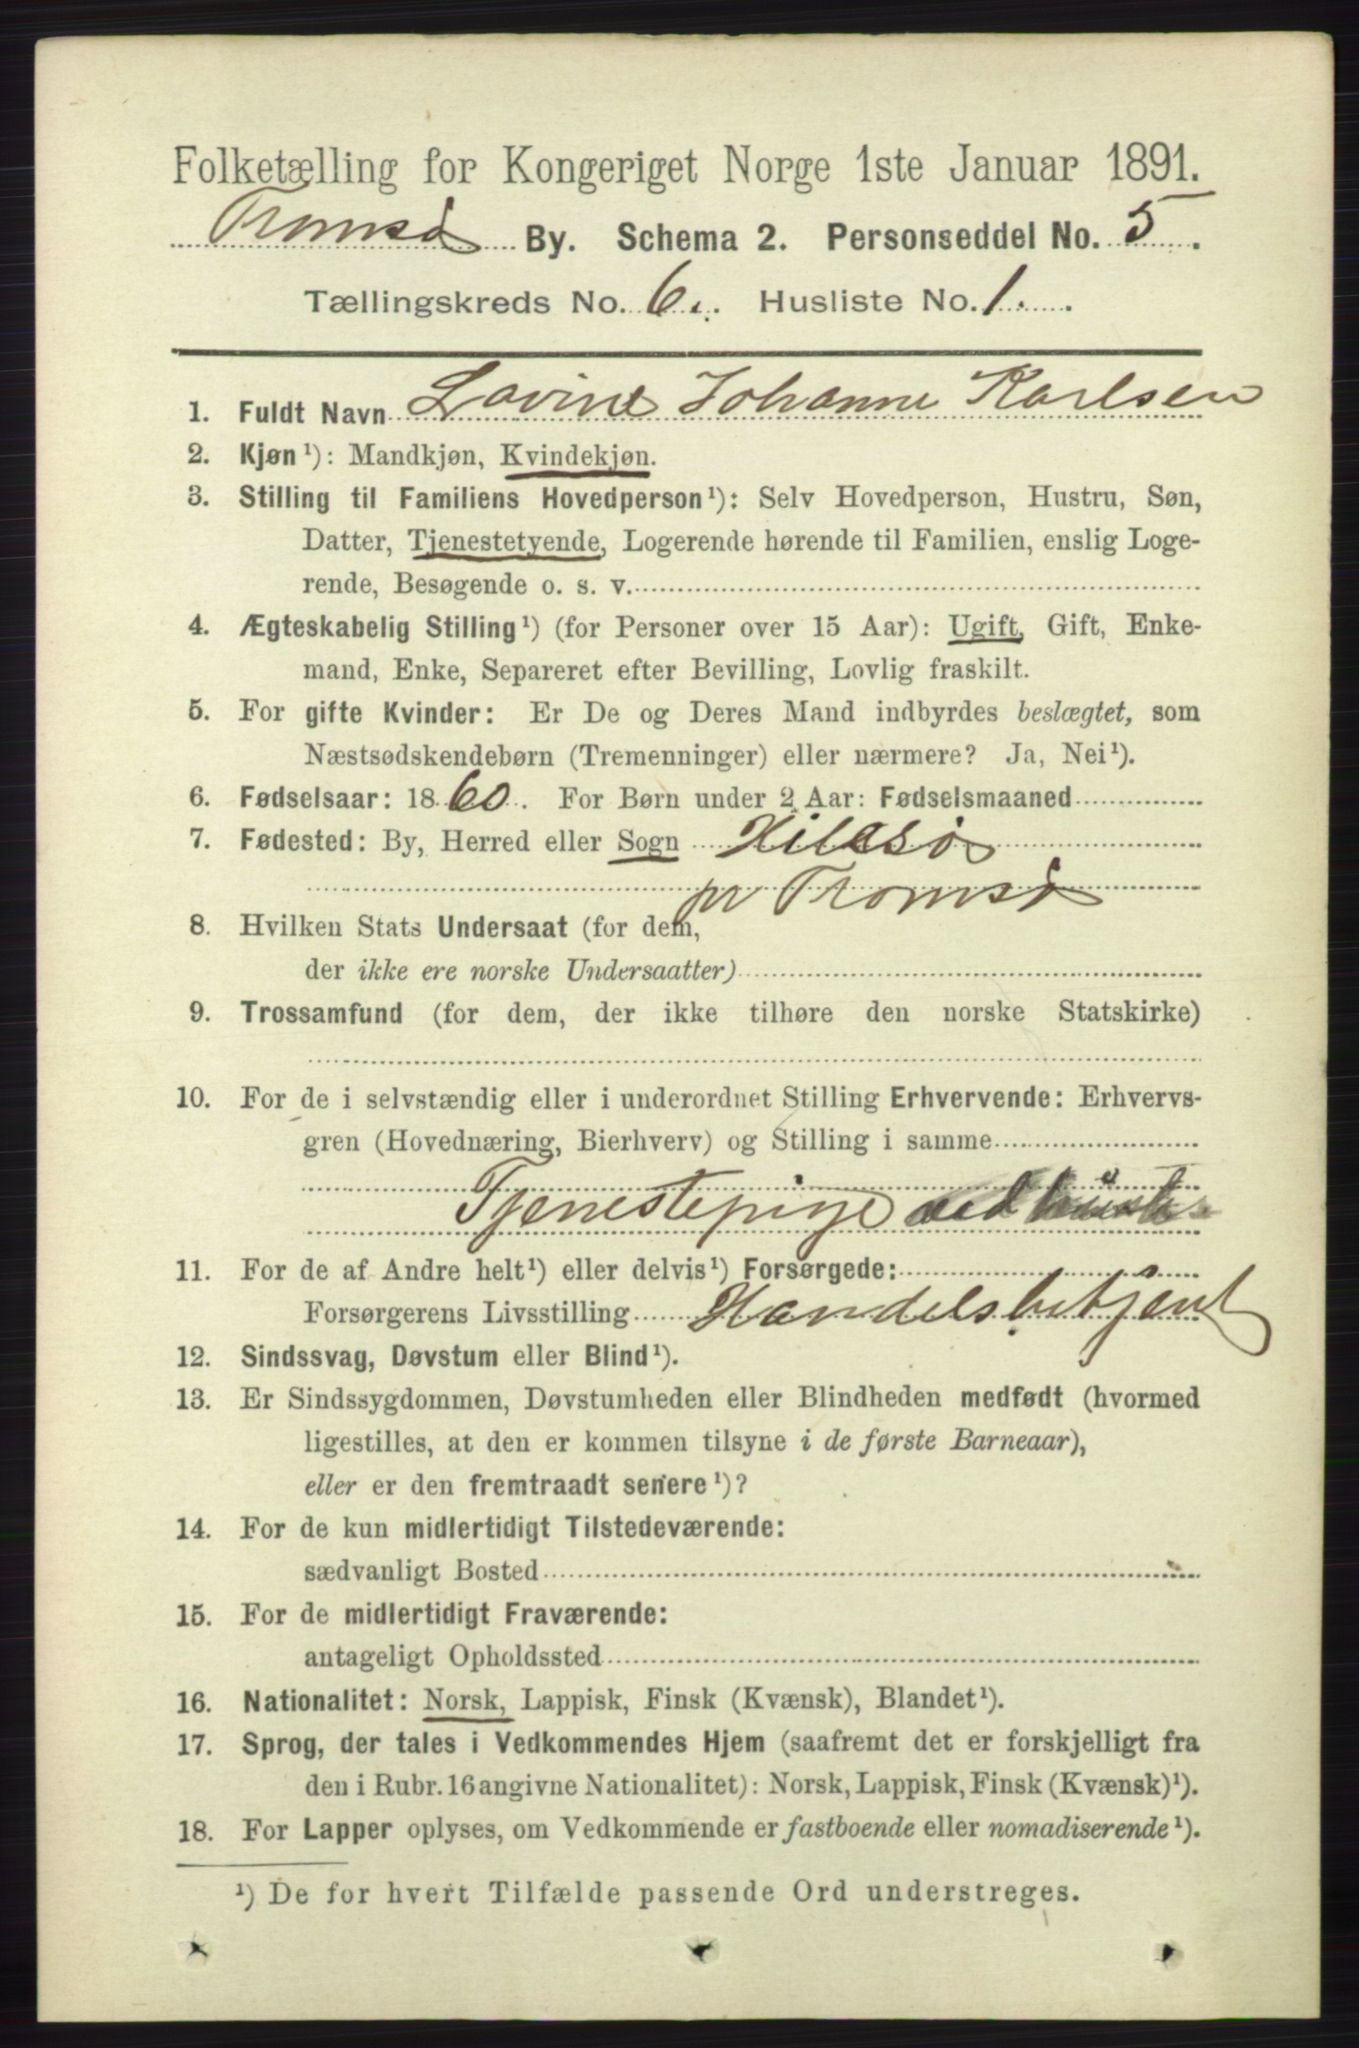 Folketælling for Kongeriget Norge 1ste Januar 1891.
Tromsø By. Schema 2. Personseddel No. 5.
Tællingskreds No. 6. Husliste No. 1.
1. Fuldt Navn Lovine Johanne Karlsen
2. Kjøn ¹): Mandkjøn, Kvindekjøn.
3. Stilling til Familiens Hovedperson ¹): Selv Hovedperson, Hustru, Søn,
Datter, Tjenestetyende, Logerende hørende til Familien, enslig Loge-
rende, Besøgende o. s. v.
4. Ægteskabelig Stilling ¹) (for Personer over 15 Aar): Ugift, Gift, Enke-
mand, Enke, Separeret efter Bevilling, Lovlig fraskilt.
5. For gifte Kvinder: Er De og Deres Mand indbyrdes beslægtet, som
Næstsødskendebørn (Tremenninger) eller nærmere? Ja, Nei ¹).
6. Fødselsaar: 1860. For Børn under 2 Aar: Fødselsmaaned
7. Fødested: By, Herred eller Sogn Hilesø
pr Tromsø
8. Hvilken Stats Undersaat (for dem,
der ikke ere norske Undersaatter)
9. Trossamfund (for dem, der ikke tilhøre den norske Statskirke)
10. For de i selvstændig eller i underordnet Stilling Erhvervende: Erhvervs-
gren (Hovednæring, Bierhverv) og Stilling i samme
Tjenestepige ved
11. For de af Andre helt ¹) eller delvis ¹) Forsørgede:
Forsørgerens Livsstilling Handelsbetjent
12. Sindssvag, Døvstum eller Blind ¹).
13. Er Sindssygdommen, Døvstumheden eller Blindheden medfødt (hvormed
ligestilles, at den er kommen tilsyne i de første Barneaar),
eller er den fremtraadt senere ¹)?
14. For de kun midlertidigt Tilstedeværende:
sædvanligt Bosted
15. For de midlertidigt Fraværende:
antageligt Opholdssted
16. Nationalitet: Norsk, Lappisk, Finsk (Kvænsk), Blandet ¹).
17. Sprog, der tales i Vedkommendes Hjem (saafremt det er forskjelligt fra
den i Rubr. 16 angivne Nationalitet): Norsk, Lappisk, Finsk (Kvænsk) ¹).
18. For Lapper oplyses, om Vedkommende er fastboende eller nomadiserende ¹).
¹) De for hvert Tilfælde passende Ord understreges.